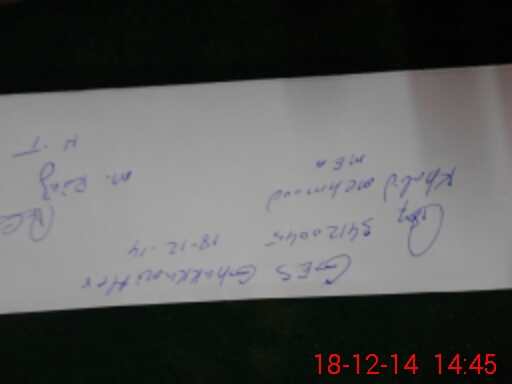 GES Ghakkhmitter
34120045 18-12-14
Khalid mehmood
MEA
M. Riaz
18-12-14 14:45